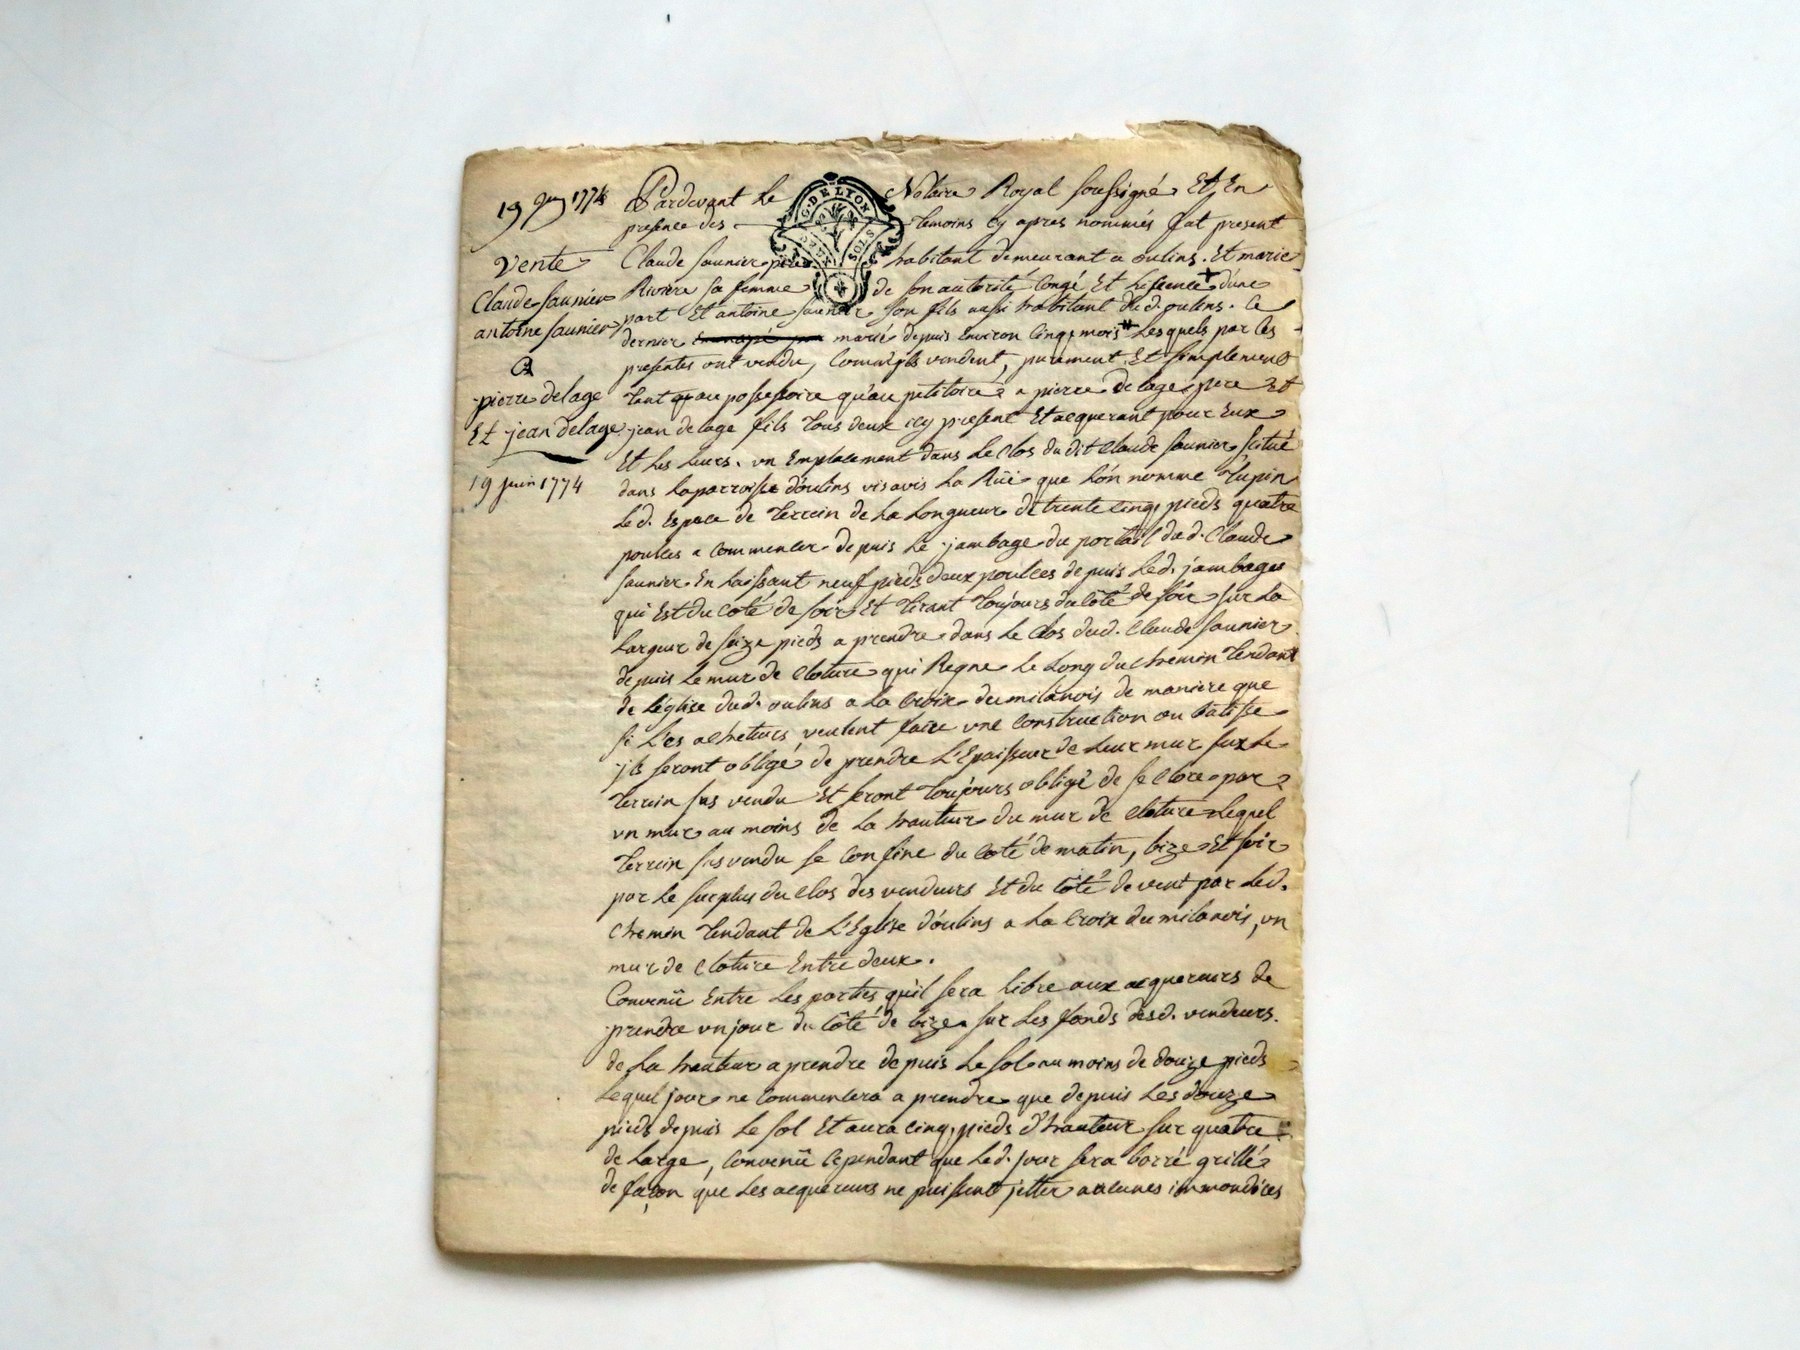 19 Juin 1774
vente
Claude Saunier
antoine Saunier
a
pierre delage
Et jean delage
19 juin 1774
G. DE LYON
SOLS
Pardevant Le Notaire Royal soussigné Et En
presence des temoins cy apres nommés fut present
Claude Saunier pere habitant demeurant a oulins. Et marie
Riviere sa femme de son autorité Congé Et Liscence d'une
part Et antoine Saunier son fils aussi habitant dud. oulins. Ce
dernier marié depuis Environ Cinq mois Lesquels par Ces
presentes ont vendu, Comme ils vendent, purement Et simplement
tant au possessoire qu'au petitoire a pierre delage pere Et
jean delage fils tous deux icy present Et acquerant pour Eux
Et Les Leurs. vn Emplacement dans Le Clos dudit Claude Saunier scitué
dans La parroisse d'oulins visavis La Rüe que L'on nomme tupin
Led. Espace de terrein de La Longueur de trente Cinq pieds quatre
pouces a Commencer depuis Le jambage du portail dud. Claude
Saunier En Laissant neuf pieds deux pouces depuis Led. jambage
qui Est du Coté de soir Et tirant toujours du Côté de soir sur La
Largeur de seize pieds a prendre dans Le Clos dud. Claude Saunier
depuis Le mur de Cloture qui Regne Le Long du Chemin tendant
de Léglise dud. oulins a La Croix du milanois de maniere que
si L'es acheteurs veulent faire vne Construction ou Batisse
jls seront obligé de prendre L'Epaisseur de Leur mur sur Le
terrein sus vendu Et seront toujours obligé de se Clore par
vn mur au moins de La hauteur du mur de Cloture Lequel
terrein sus vendu se Confine du Coté de matin, bize Et soir
par Le surplus du Clos des vendeurs Et du Côté de vent par Led.
Chemin tendant de L'Eglise d'oulins a La Croix du milanois, vn
mur de Cloture Entre deux.
Convenü Entre Les parties qu'il sera Libre aux acquereurs de
prendre vn jour du Côté de bize sur Les fonds desd. vendeurs.
de La hauteur a prendre depuis Le sol au moins de douze pieds
Lequel jour ne Commencera a prendre que depuis Les douze
pieds depuis Le sol Et aura Cinq pieds d'hauteur sur quatre
de Large, Convenü Cependant que Led. jour sera barré grillé
de façon que Les acquereurs ne puissent jetter aucunes immondices